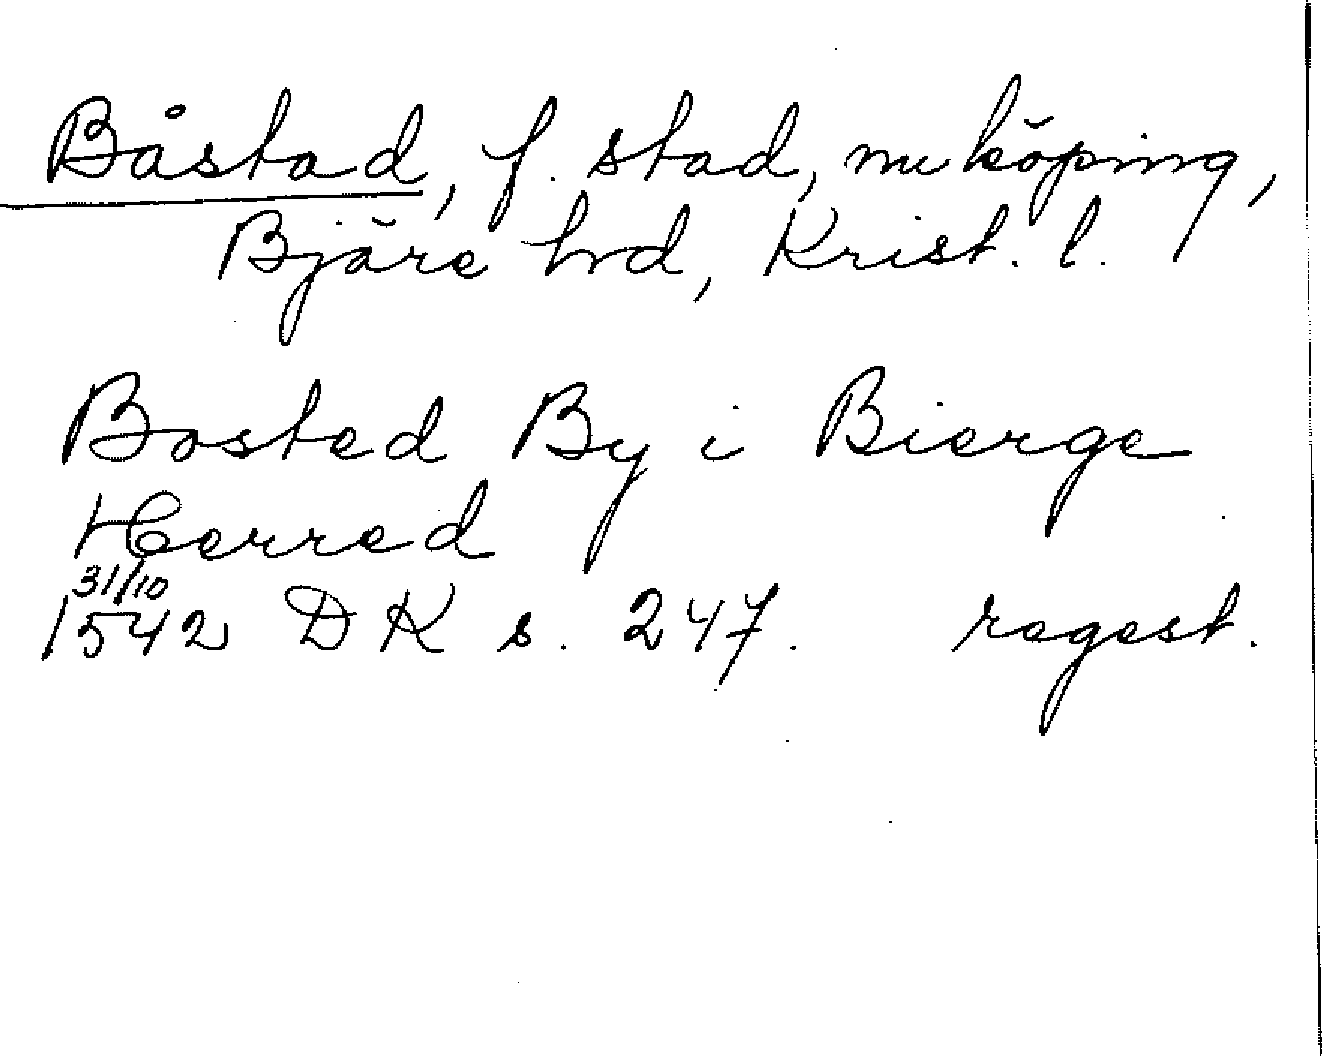 Båstad, f. stad, nu köping,
Bjäre hrd, Krist. l.
Bosted By i Bierge
Herred
31/10
1542 DK s. 247. regest.